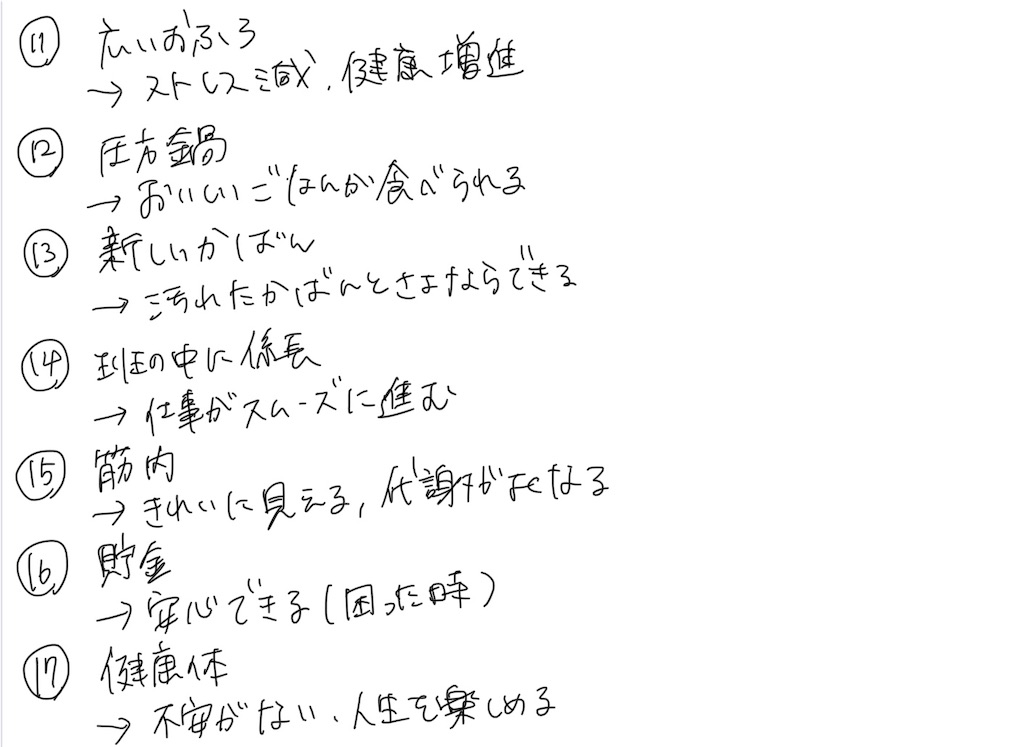 ⑪ 広いおふろ
→ ストレス減、健康増進
⑫ 圧力鍋
→ おいしいごはんが食べられる
⑬ 新しいかばん
→ 汚れたかばんとさよならできる
⑭ 班の中に係長
→ 仕事がスムーズに進む
⑮ 筋肉
→ きれいに見える、代謝がよくなる
⑯ 貯金
→ 安心できる(困った時)
⑰ 健康体
→ 不安がない、人生を楽しめる